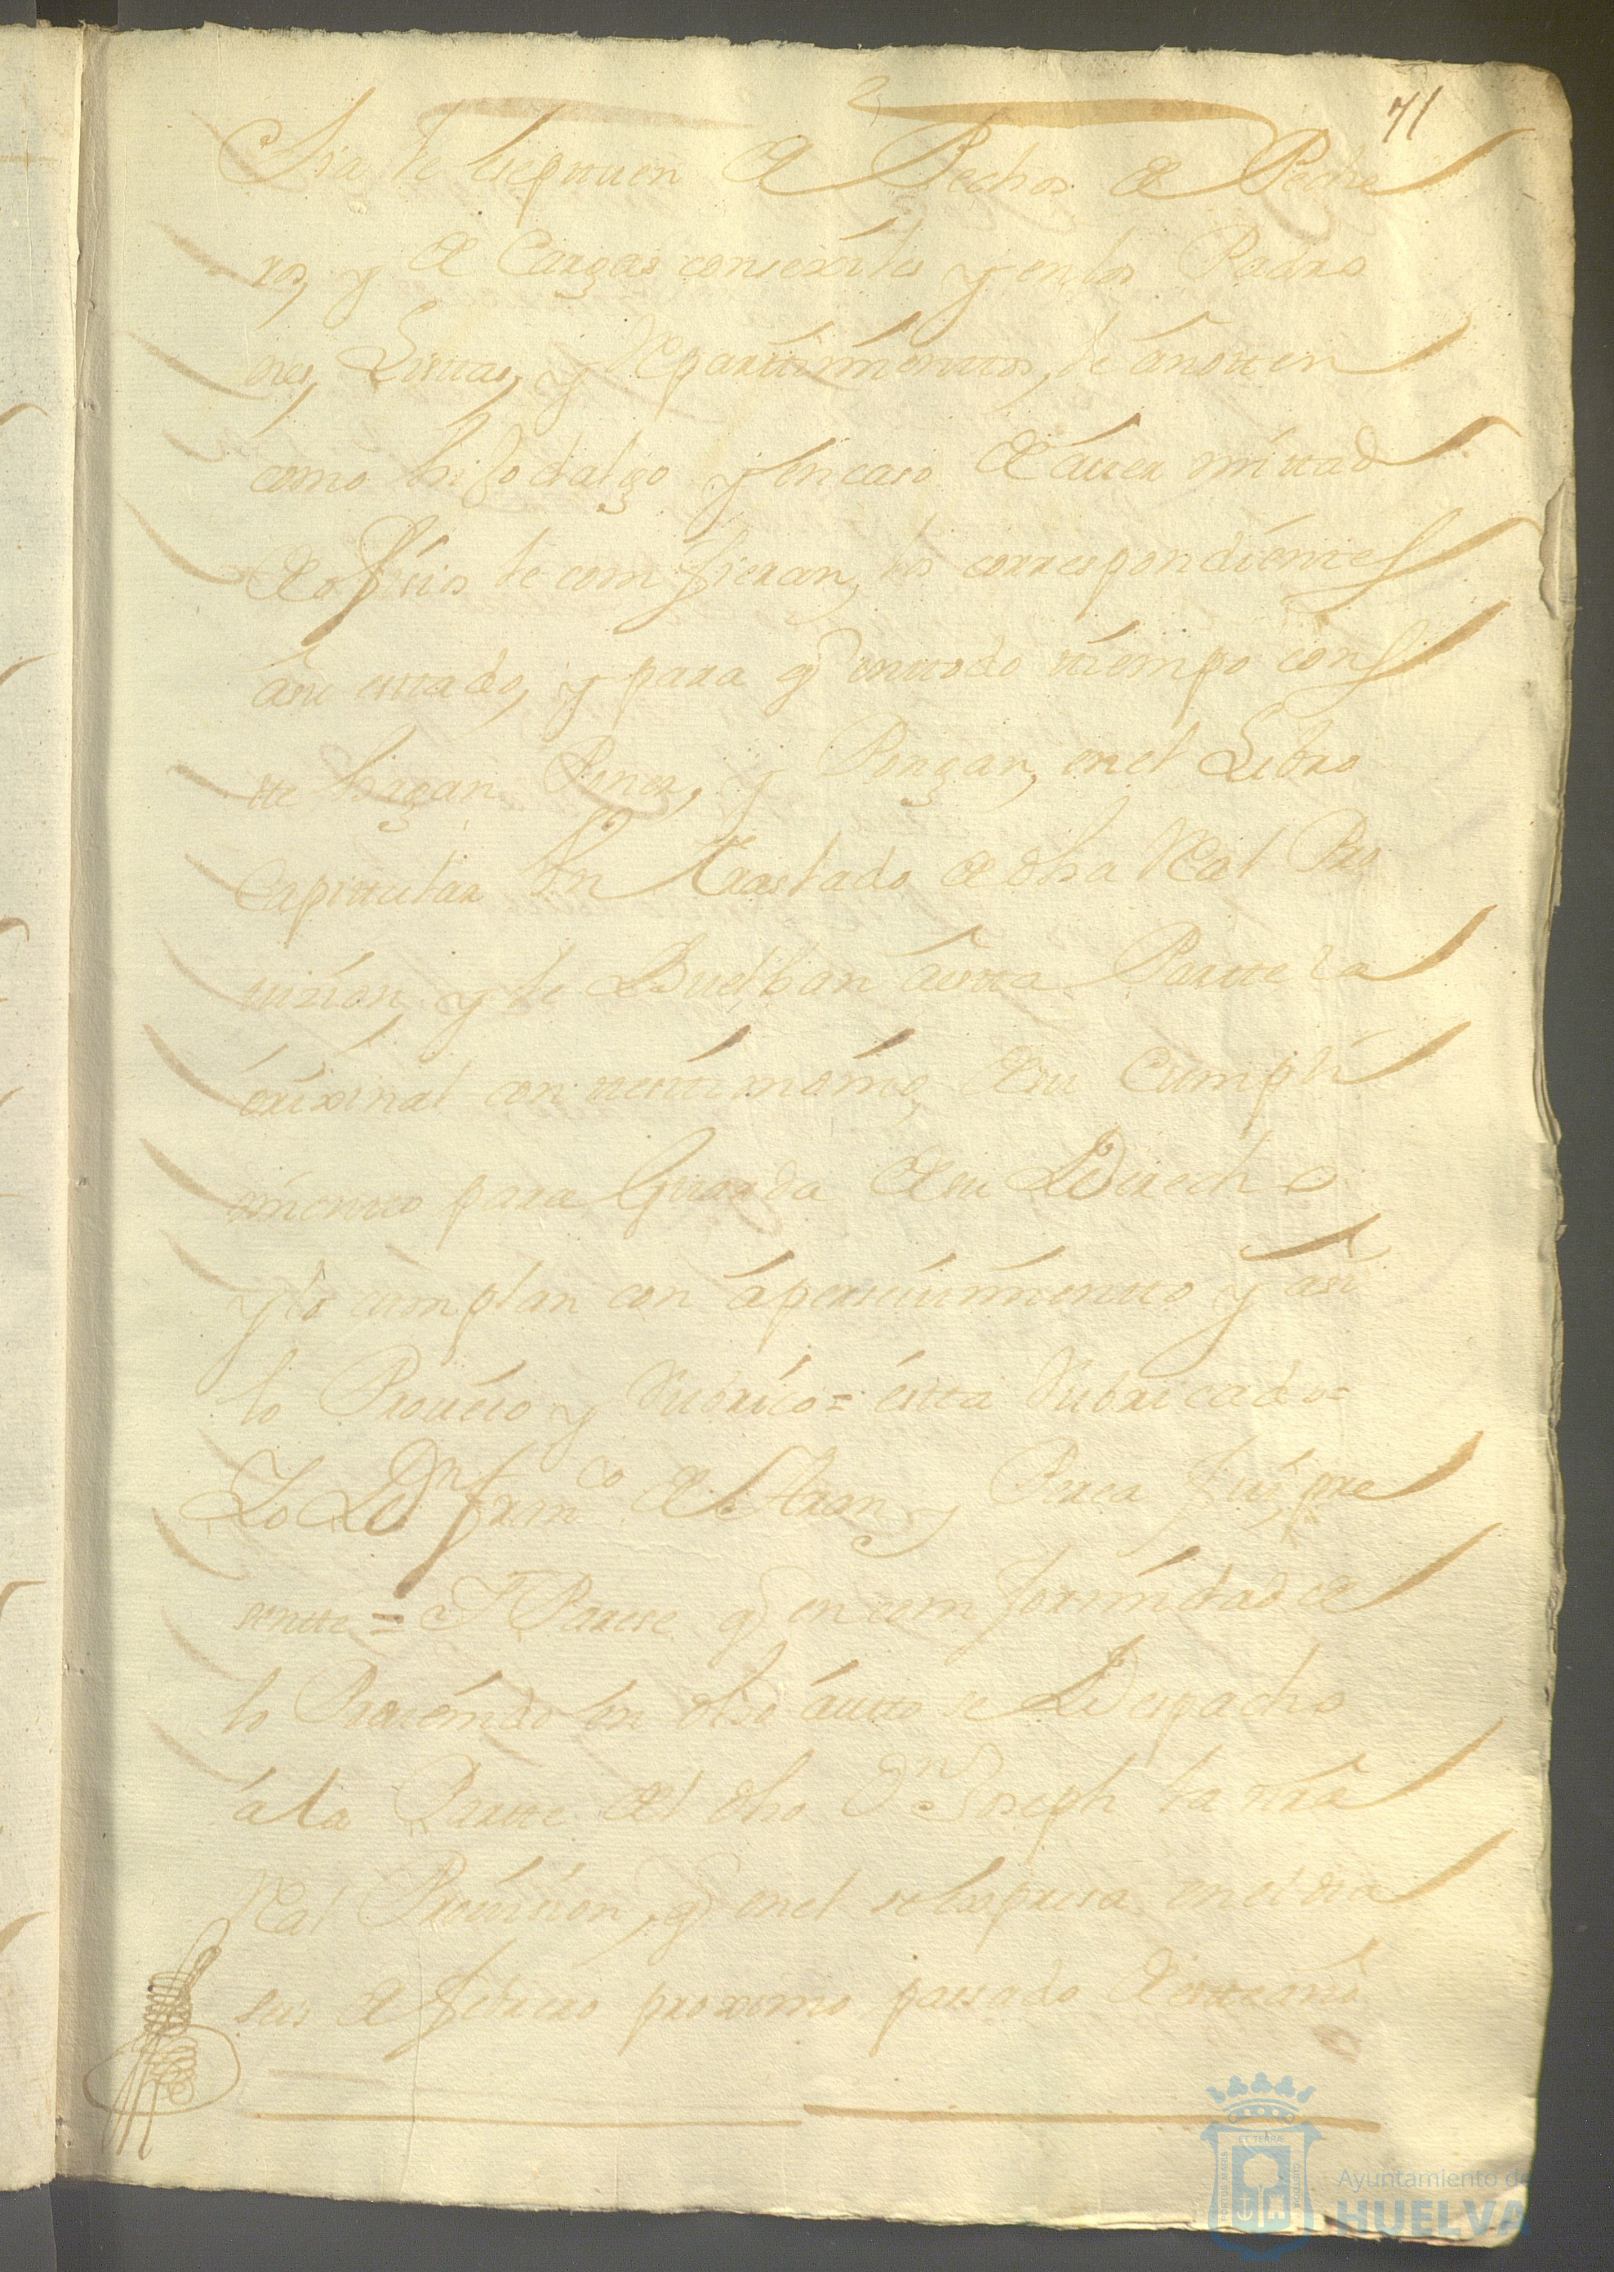 71
cia le esepttuen de Pechos de Peche
ros, y de Cargas consexiles y en los Padro
nes, Listtas, y Reparttimienttos, le anotten
como hijodalgo y en caso de auer mittad
de ofisios le comfieran, los correspondientes
asu esttado, y para q̃ en ttodo ttiempo cons
tte hagan Poner, y Pongan, en el Libro
Capittular Vn Traslado de dha Real Pro
uision, y le Buelban a estta Partte la
orixinal con testtimonio, de su Cumpli
mientto para Guarda de su Derecho
y lo cumplan con apersiuimientto y asi
lo Proueio y Rubrico = estta Rubricado =
Yo Dn. Franco. de Aran y Perea fui pre
sentte = Y Parese q̃ en comformidad de
lo Proueindo en dho autto se Despacho
a la Partte del dho Dn. Joseph la nra
Real Prouision, q̃ en el se expresa en el dia
seis de febrero proximo passado de este año
Ayuntamiento de
HUELVA